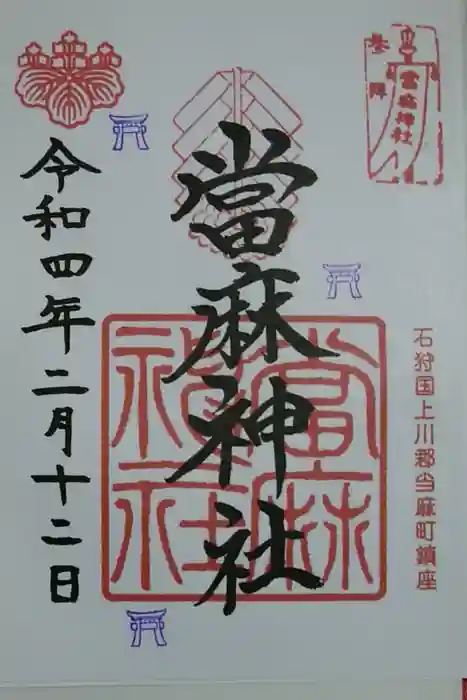 参拝
當麻神社
石狩国上川郡当麻町鎮座
當麻神社
當麻神社
令和四年二月十二日